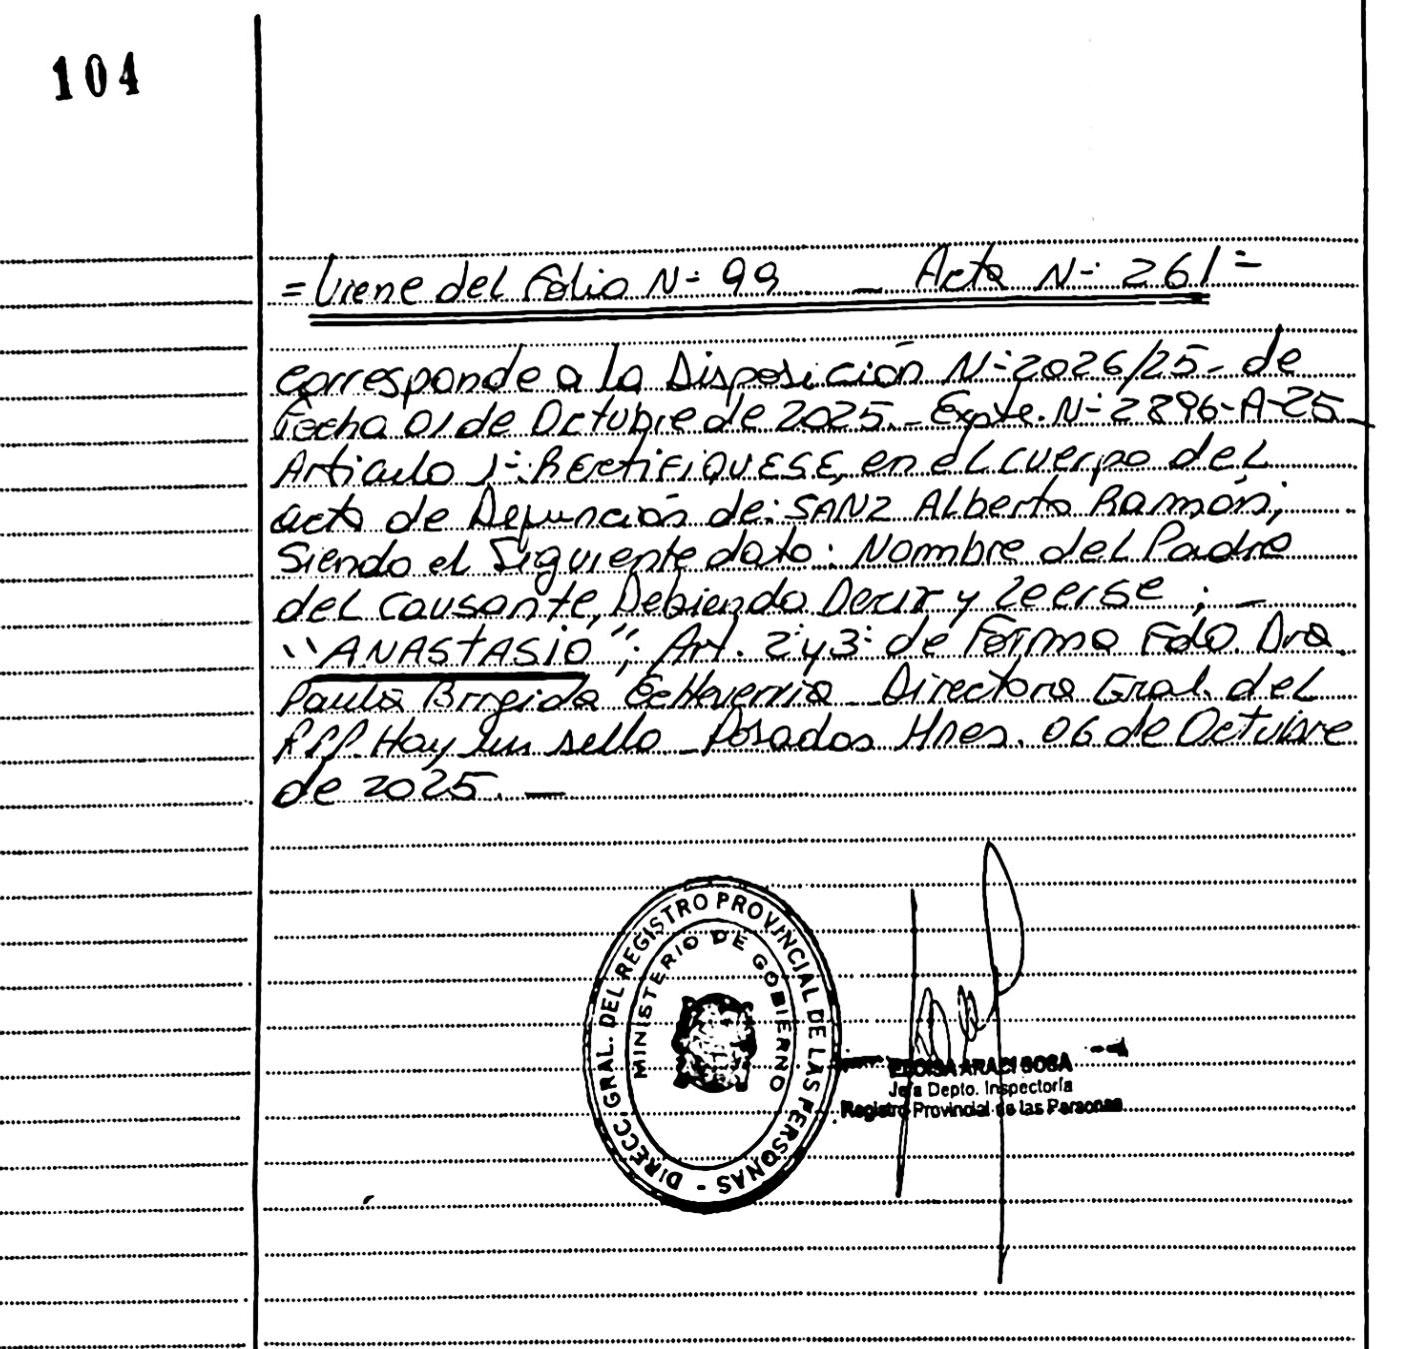 104
= Viene del Folio N-: 99 _ Acta N-: 261 =
corresponde a la Disposición N-: 2026/25_ de
Fecha 01 de Octubre de 2025._ Expte. N-: 2896-A-25_
Articulo 1-: RECtiFiQUESE, en el cuerpo del
acta de Defunción de: SANZ Alberto Ramón;
Siendo el Siguiente dato: Nombre del Padre
del causante, Debiendo Decir y Leerse ; _
"ANAStASiO"; Art. 2: y 3: de Forma Fdo. Dra.
Paula Brigida Echeverria _ Directora Gral. del
RPP. Hay un sello _ Posadas Mnes. 06 de Octubre
de 2025. _
DIRECC. GRAL. DEL REGISTRO PROVINCIAL DE LAS PERSONAS -
MINISTERIO DE GOBIERNO
ELOISA ARACI SOSA
Jefa Depto. Inspectoría
Registro Provincial de las Personas